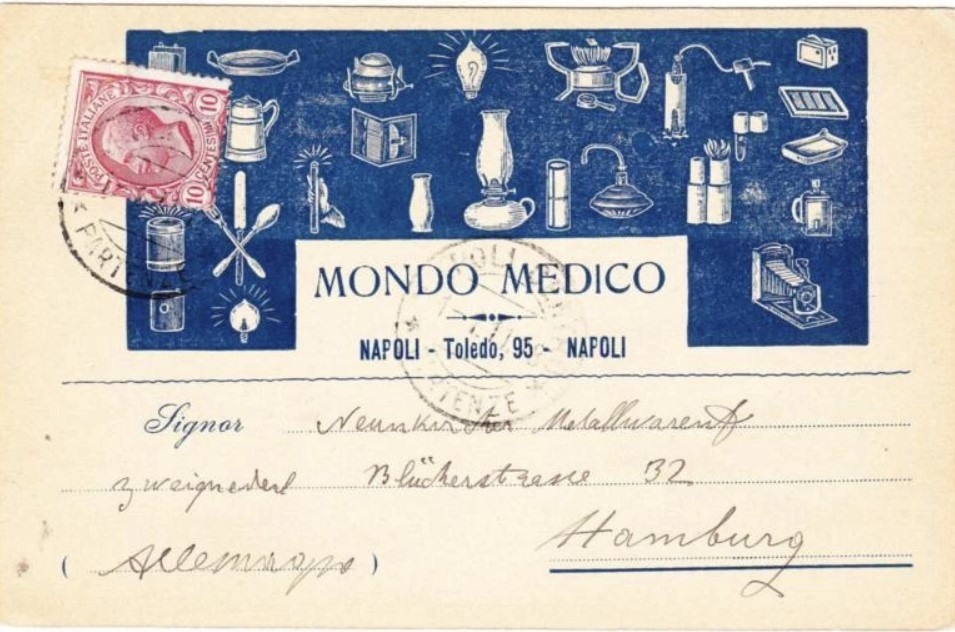 POSTE ITALIANE
CENTESIMI 10
10
PARTENZE
NAPOLI
PARTENZE
MONDO MEDICO
NAPOLI - Toledo, 95 - NAPOLI
Signor Neunkircher Metallwarenf
zweigniederl Blücherstrasse 32
Hamburg
( Allemagne )